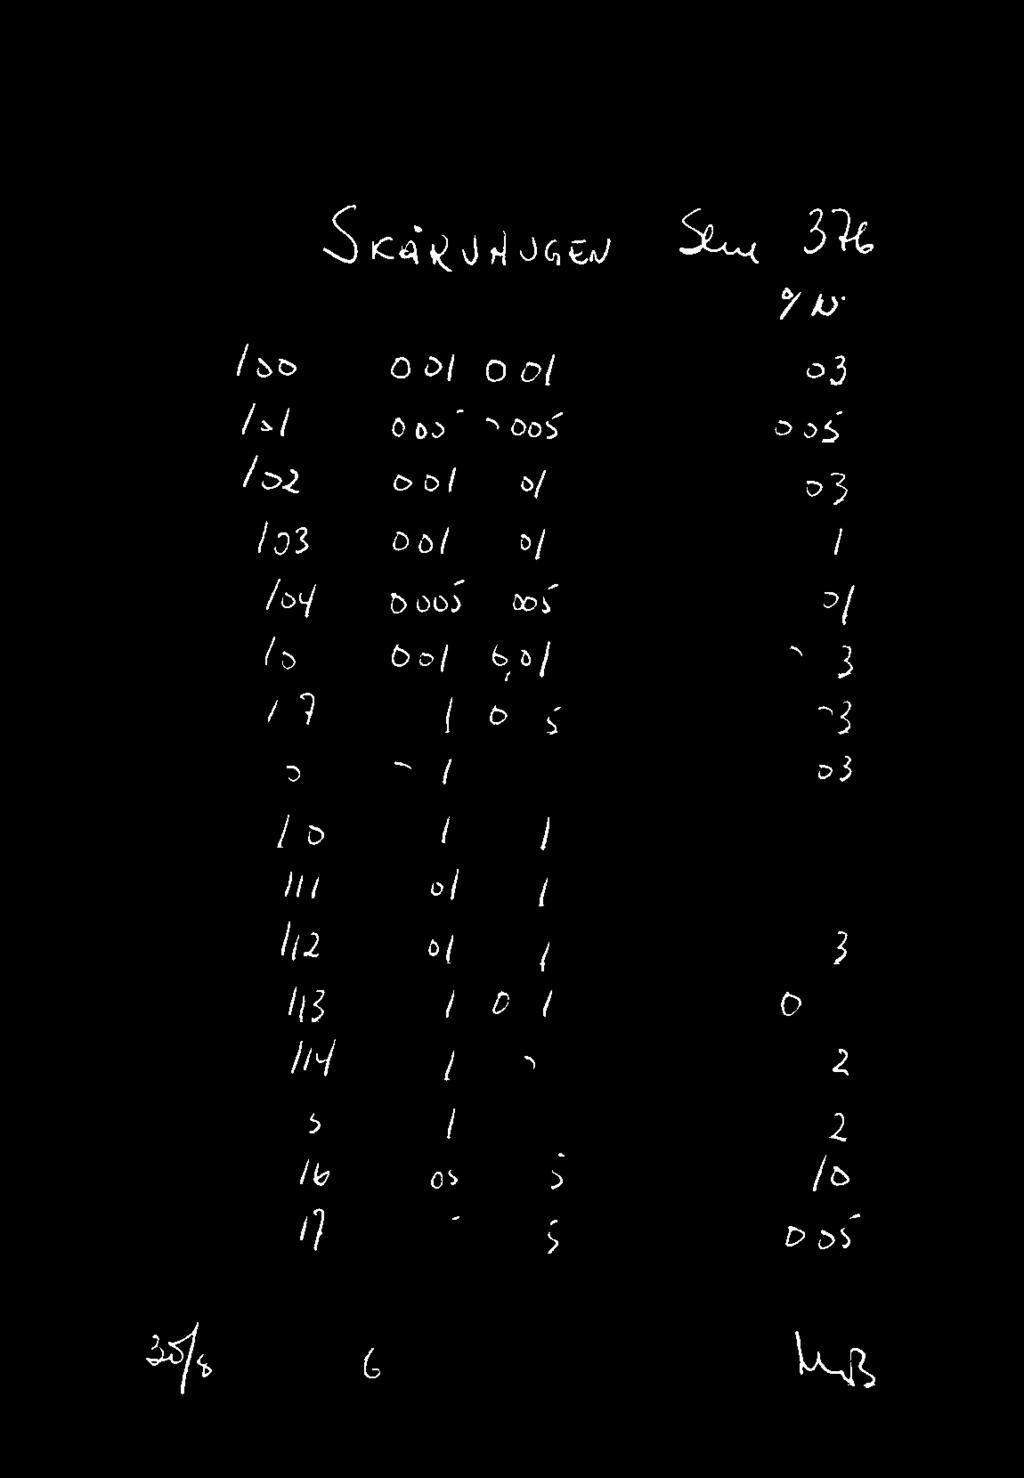 SKÅRVHUGEN 376
% N
100 001 001 03
101 0005 005 005
102 001 01 03
103 001 01 1
104 0005 005 01
10 001 0,01 3
17 1 0 5 3
0 1 03
10 1 1
111 01 1
112 01 1 3
113 1 0 1 0
114 1 2
5 1 2
16 05 5 10
17 5 005
30/8 6 MB